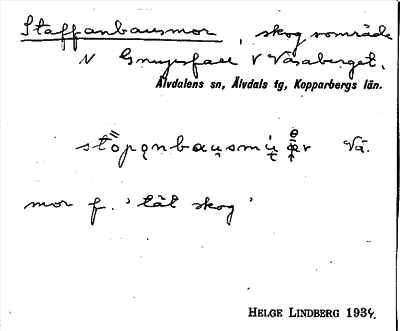 Staffanbausmor, skogsområde
N Gnupsfall V Våsaberget.
Älvdalens sn, Älvdals tg, Kopparbergs län.
Vå.
mor f. 'tät skog'
HELGE LINDBERG 1934.